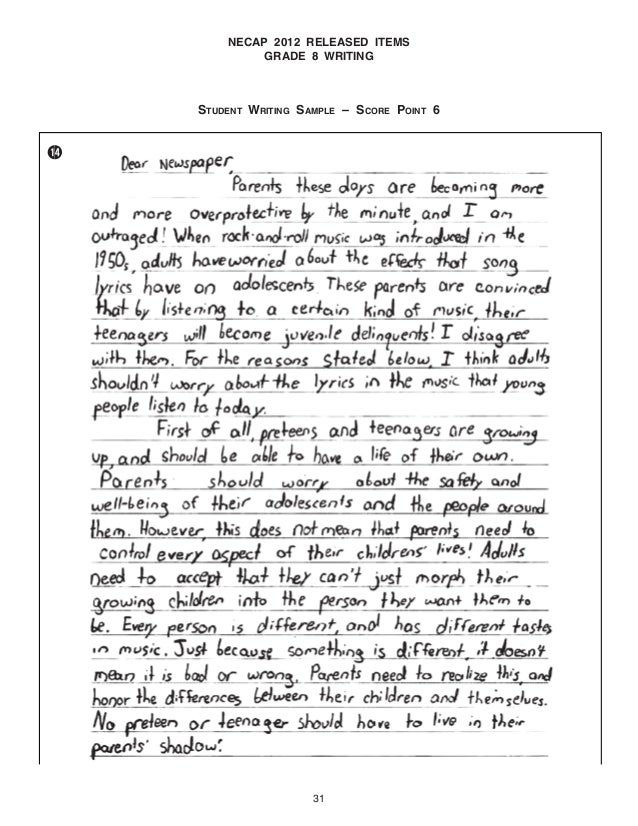 NECAP 2012 RELEASED ITEMS
GRADE 8 WRITING
STUDENT WRITING SAMPLE – SCORE POINT 6
14
Dear Newspaper,
Parents these days are becoming more
and more overprotective by the minute, and I am
outraged! When rock-and-roll music was introduced in the
1950s, adults have worried about the effects that song
lyrics have on adolescents. These parents are convinced
that by listening to a certain kind of music, their
teenagers will become juvenile delinquents! I disagree
with them. For the reasons stated below, I think adults
shouldn't worry about the lyrics in the music that young
people listen to today.
First of all, preteens and teenagers are growing
up, and should be able to have a life of their own.
Parents should worry about the safety and
well-being of their adolescents and the people around
them. However, this does not mean that parents need to
control every aspect of their childrens' lives! Adults
need to accept that they can't just morph their
growing children into the person they want them to
be. Every person is different, and has different tastes
in music. Just because something is different, it doesn't
mean it is bad or wrong. Parents need to realize this, and
honor the differences between their children and themselves.
No preteen or teenager should have to live in their
parents' shadow!
31